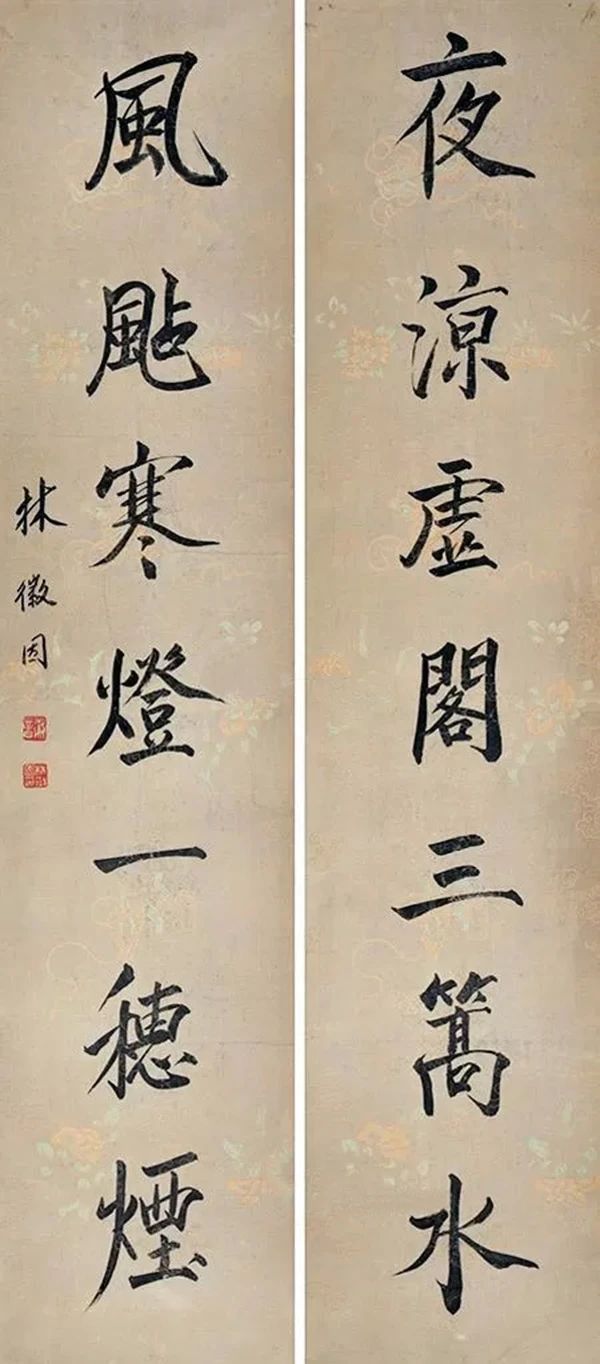 夜涼虛閣三篙水
風颭寒燈一穗煙
林徽因